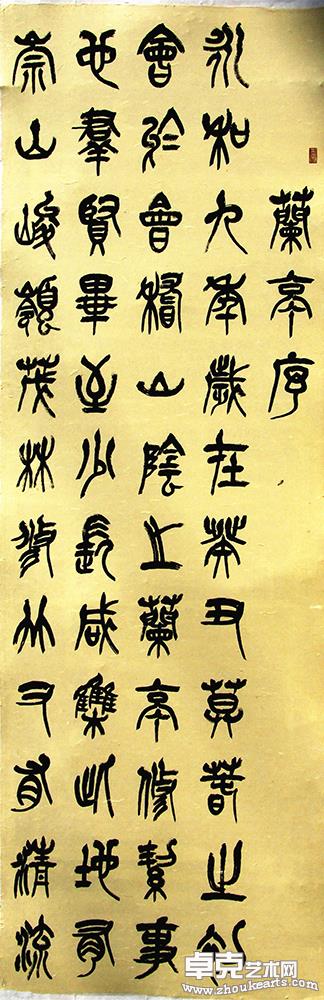 蘭亭序
永和九年歲在癸丑莫春之初
會於會稽山陰之蘭亭修禊事
也羣賢畢至少長咸集此地有
崇山峻領茂林修竹又有清流
卓克艺术网
www.zhoukearts.com